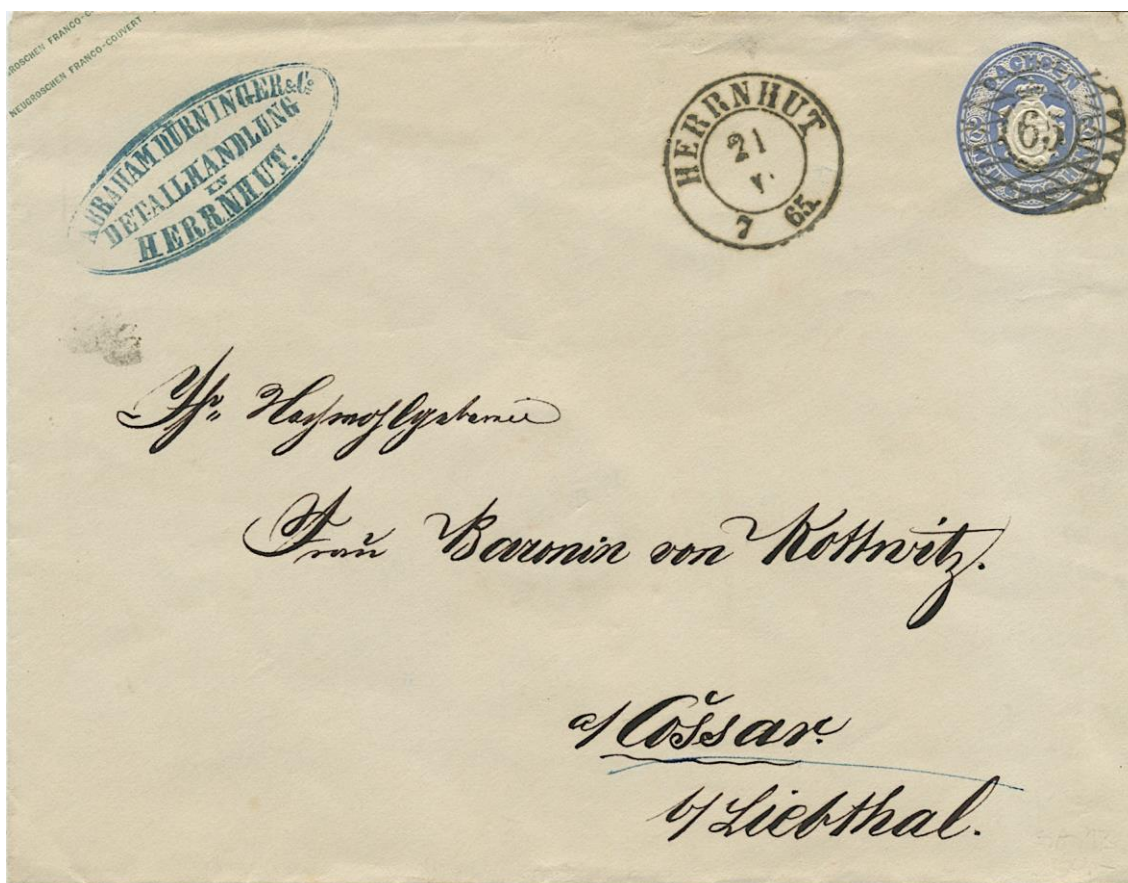 GROSCHEN FRANCO-C
NEUGROSCHEN FRANCO-COUVERT
ABRAHAM DÜRNINGER & Co
DETAILHANDLUNG
IN
HERRNHUT.
HERRNHUT
21
V.
7 65.
SACHSEN
165
Ihr. Hochwohlgeboren
Frau Baronin von Kottwitz.
a/ Cossar.
b/ Liebthal.